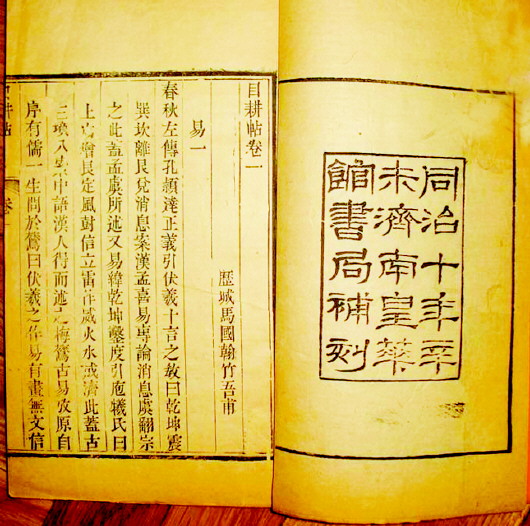 同治十年辛
未濟南皇華
館書局補刻
目耕帖卷一
歷城馬國翰竹吾甫
易一
春秋左傳孔穎達正義引伏羲十言之教曰乾坤震
巽坎離艮兌消息案漢孟喜易專論消息虞翻宗
之此蓋孟虞所述又易緯乾坤鑿度引庖犧氏曰
上增艮定風對信立雷作威火水成濟此蓋古
三墳八索中語漢人得而述之梅鷟古易攷原自
序有儒一生問於鷟曰伏羲之作易有畫無文信
耕帖 卷